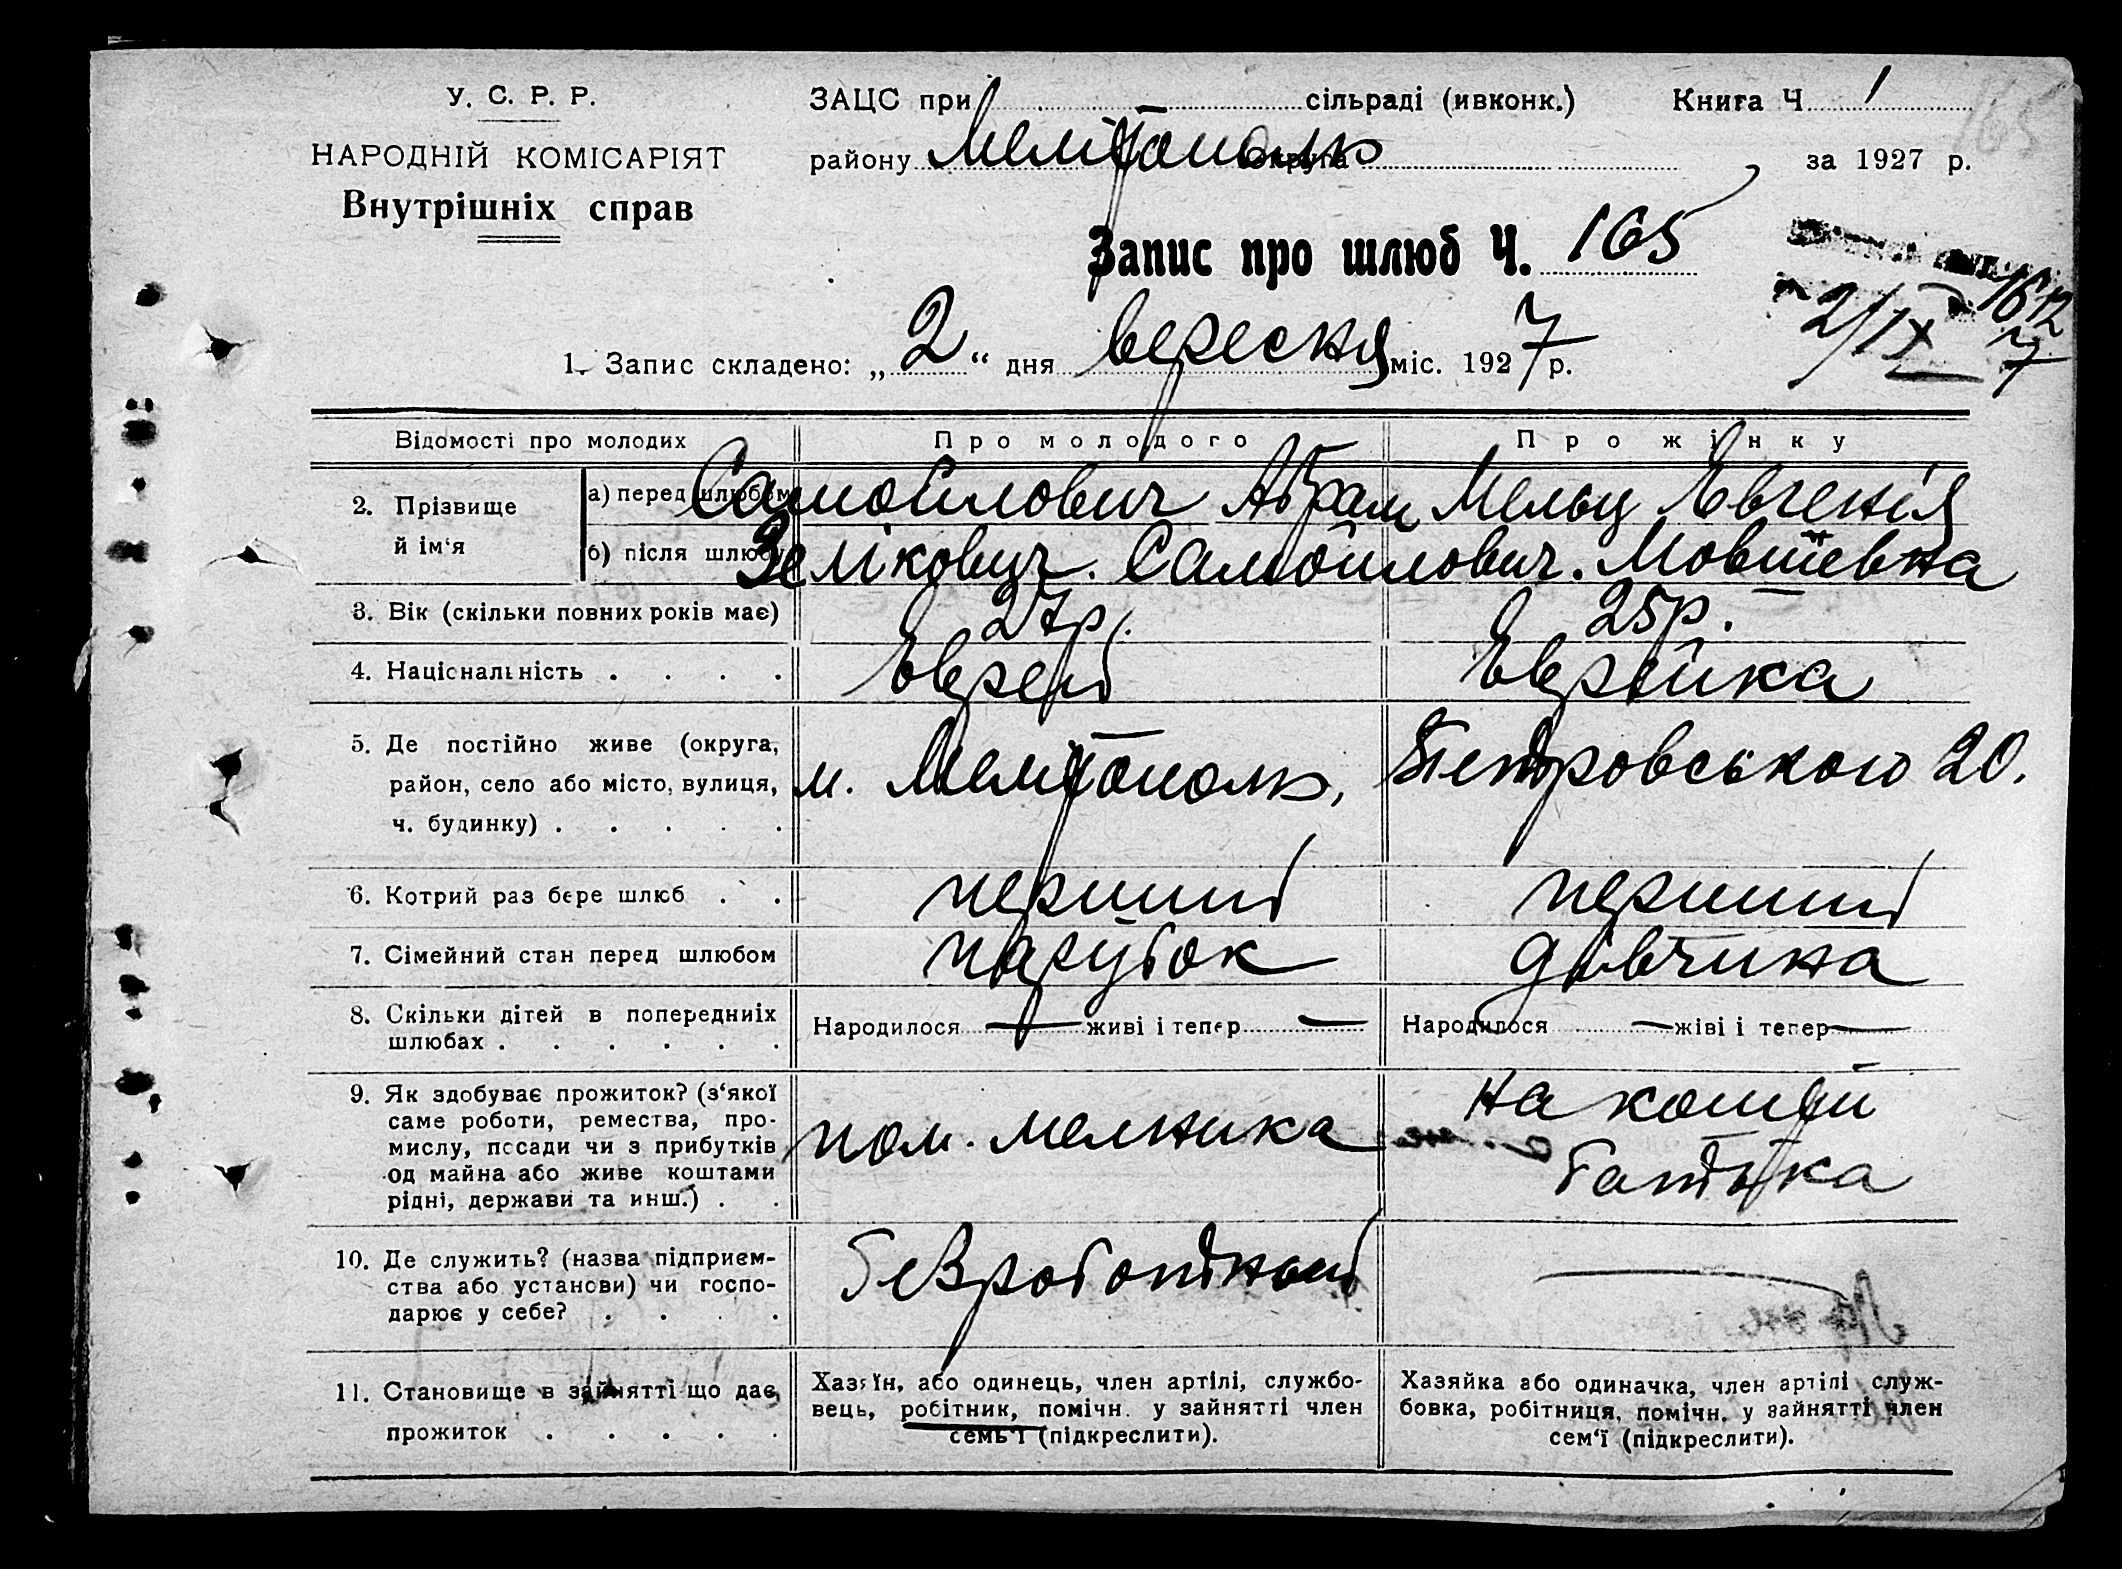 У. С. Р. Р.
НАРОДНІЙ КОМІСАРІЯТ
Внутрішніх справ
ЗАЦС при сільраді (ивконк.) Книга Ч 1
району Мелітополь округа за 1927 р.
165
Запис про шлюб Ч. 165
2/IX 7
1. Запис складено: „ 2 “ дня вересня міс. 1927 р.
Відомості про молодих Про молодого Про жінку
2. Прізвище й ім‘я
а) перед шлюбом Самойлович Абрам Мельц Євгенія
б) після шлюбу Зелікович. Самойлович. Мовшевна
3. Вік (скільки повних років має) 27р. 25р.
4. Національність . . . . Єврей Єврейка
5. Де постійно живе (округа,
район, село або місто, вулиця, м. Мелітополь, Петровського 20.
ч. будинку) . . . . .
6. Котрий раз бере шлюб . . перший перший
7. Сімейний стан перед шлюбом парубок дівчина
8. Скільки дітей в попередниіх
шлюбах . . . . . . Народилося — живі і тепер — Народилося — жіві і тепер —
9. Як здобуває прожиток? (з‘якої
саме роботи, ремества, про-
мислу, посади чи з прибутків
од майна або живе коштами
рідні, держави та инш.) . .
пом. мелника
на кошти
батька
10. Де служить? (назва підприєм-
ства або установи) чи госпо-
дарює у себе? . . . .
безработный
11. Становище в зайнятті що дає
прожиток . . . . .
Хазяїн, або одинець, член артілі, службо-
вець, робітник, помічн. у зайнятті член
семь‘ї (підкреслити).
Хазяйка або одиначка, член артілі служ-
бовка, робітниця, помічн. у зайнятті член
сем‘ї (підкреслити).